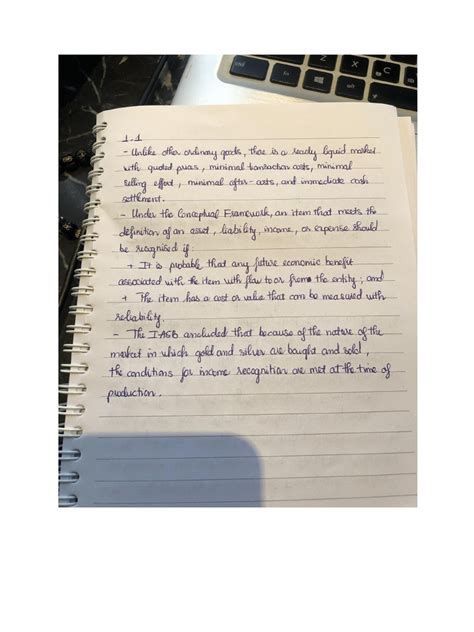 1.1
- Unlike other ordinary goods, there is a ready liquid market
with quoted prices, minimal transaction costs, minimal
selling effort, minimal after-costs, and immediate cash
settlement.
- Under the Conceptual Framework, an item that meets the
definition of an asset, liability, income, or expense should
be recognised if:
+ It is probable that any future economic benefit
associated with the item with flow to or from the entity; and
+ The item has a cost or value that can be measured with
reliability.
- The IASB concluded that because of the nature of the
market in which gold and silver are bought and sold,
the conditions for income recognition are met at the time of
production.